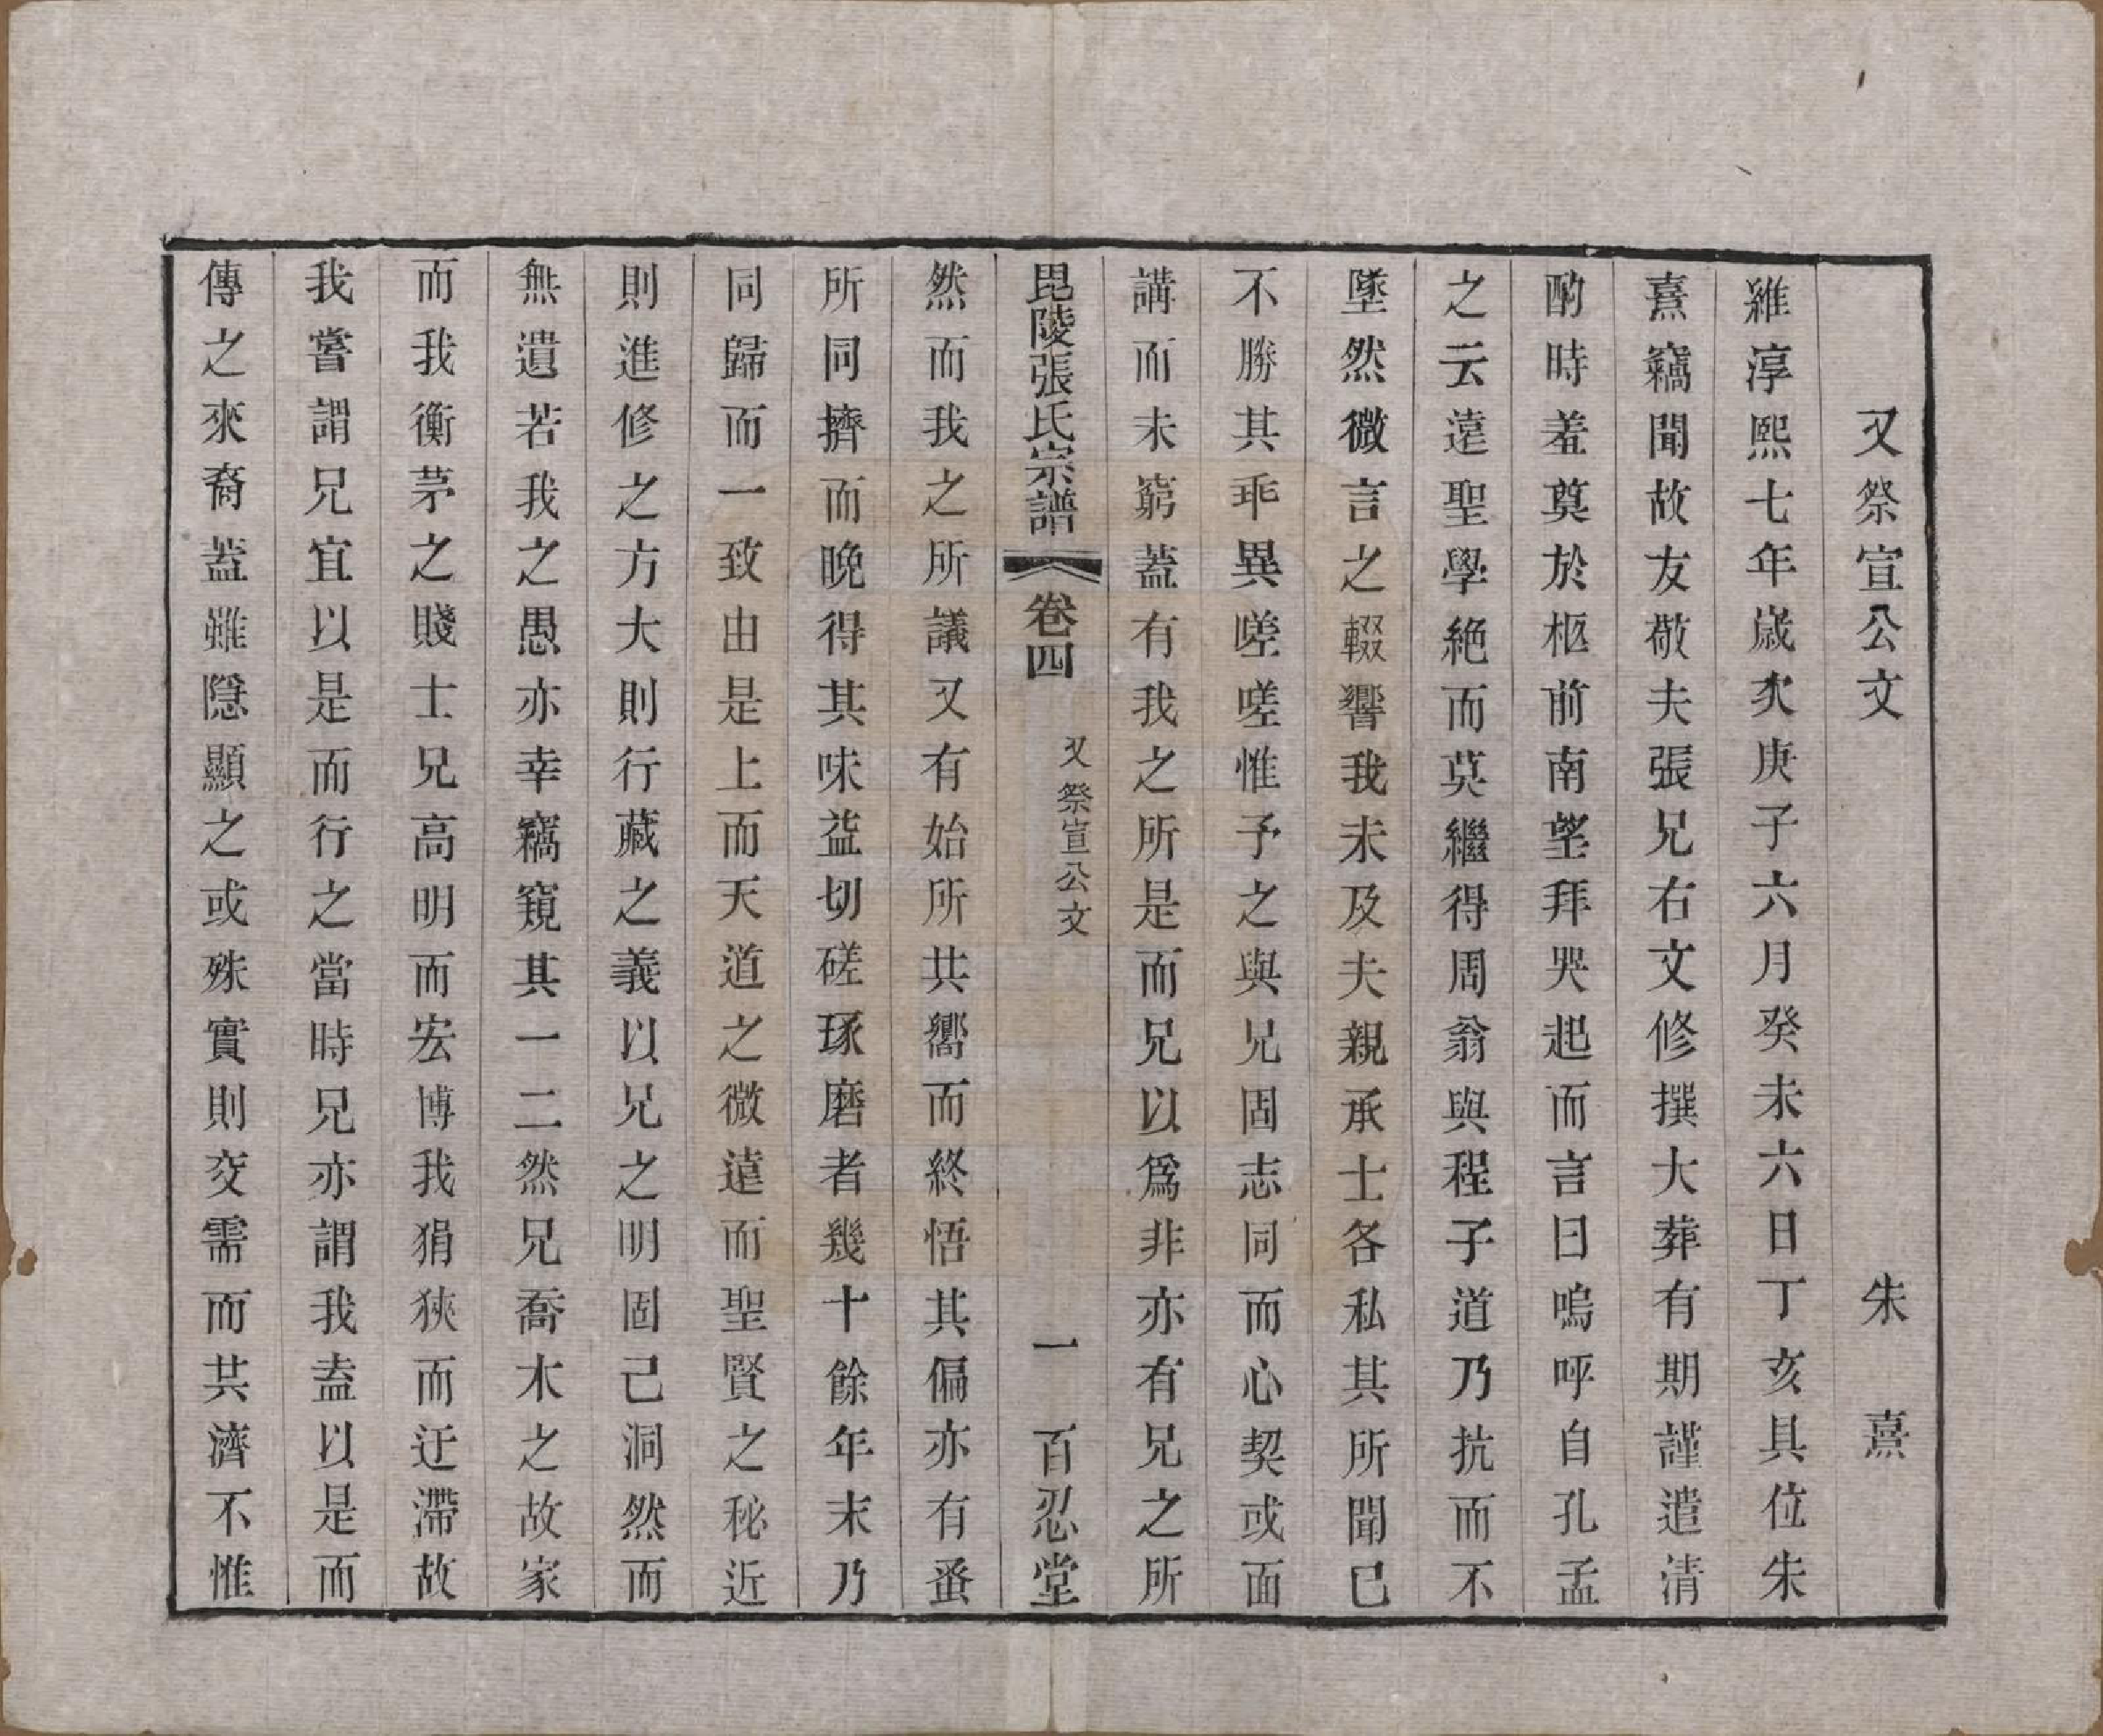 又祭宣公文　朱熹
維淳熙七年歲次庚子六月癸未六日丁亥具位朱
熹竊聞故友敬夫張兄右文修撰大葬有期謹遣清
酌時羞奠於柩前南望拜哭起而言曰嗚呼自孔孟
之云遠聖學絶而莫繼得周翁與程子道乃抗而不
墜然微言之輟響我未及夫親承士各私其所聞已
不勝其乖異嗟嗟惟予之與兄固志同而心契或面
講而未窮蓋有我之所是而兄以爲非亦有兄之所
毘陵張氏宗譜　卷四　又祭宣公文　一　百忍堂
然而我之所議又有始所共嚮而終悟其偏亦有蚤
所同擠而晚得其味益切磋琢磨者幾十餘年末乃
同歸而一致由是上而天道之微遠而聖賢之秘近
則進修之方大則行藏之義以兄之明固己洞然而
無遺若我之愚亦幸竊窺其一二然兄喬木之故家
而我衡茅之賤士兄高明而宏博我狷狹而迂滯故
我嘗謂兄宜以是而行之當時兄亦謂我盍以是而
傳之來裔蓋雖隱顯之或殊實則交需而共濟不惟